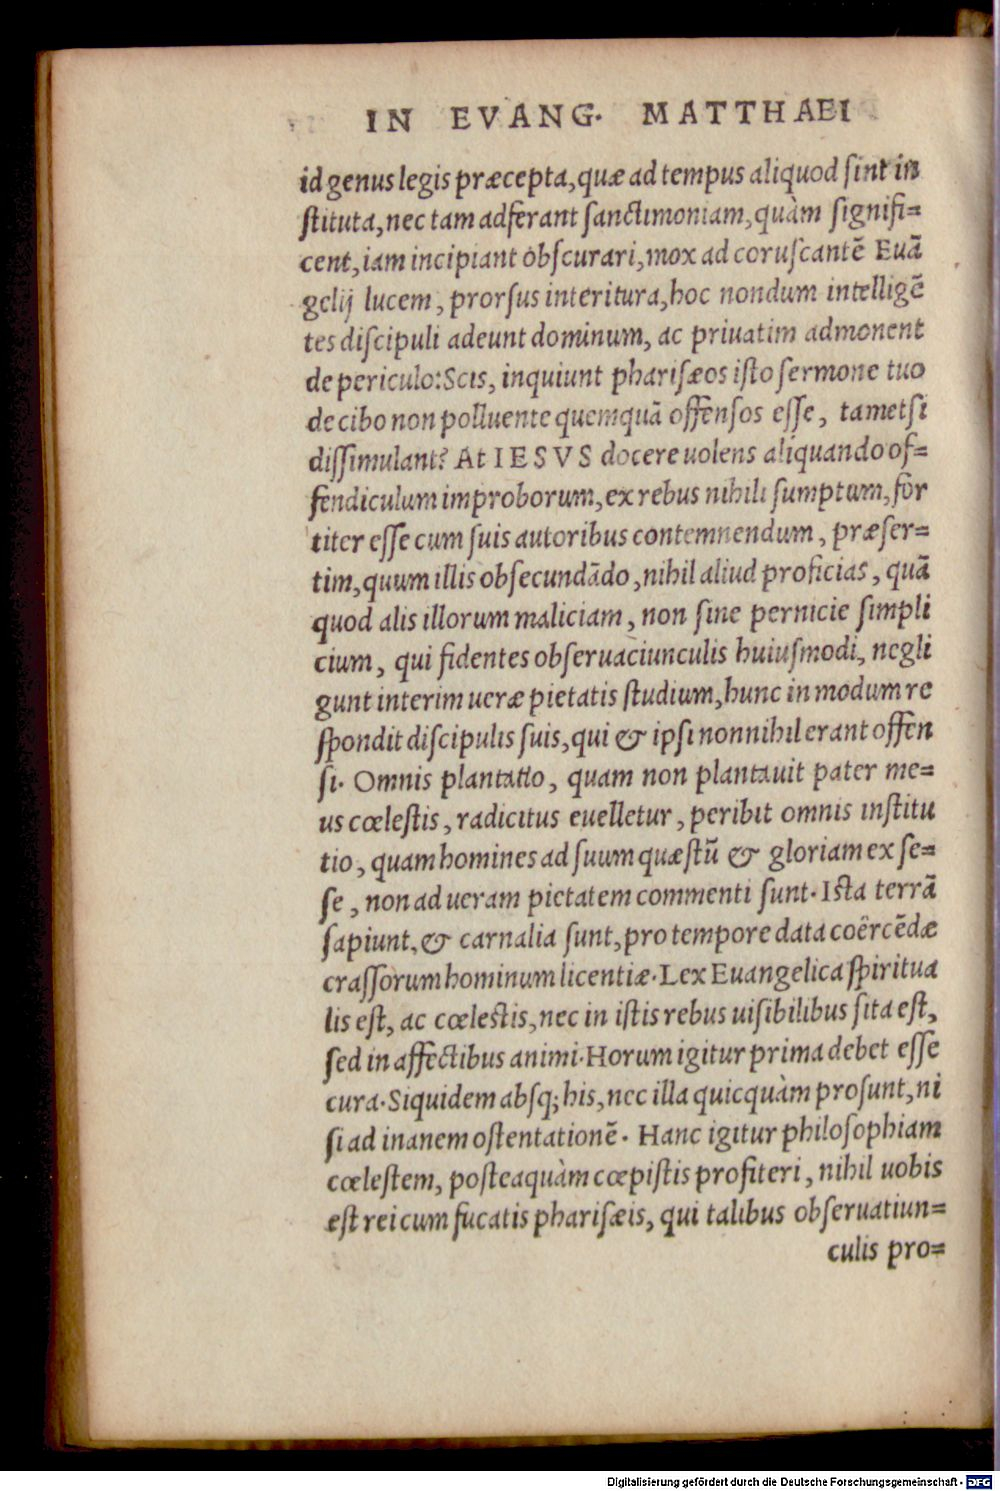 IN EVANG. MATTHAEI
id genus legis præcepta, quæ ad tempus aliquod sint in
stituta, nec tam adferant sanctimoniam, quàm signifi=
cent, iam incipiant obscurari, mox ad coruscantē Euā
gelij lucem, prorsus interitura, hoc nondum intelligē
tes discipuli adeunt dominum, ac priuatim admonent
de periculo: Scis, inquiunt pharisæos isto sermone tuo
de cibo non polluente quemquā offensos esse, tametsi
dissimulant? At IESVS docere uolens aliquando of=
fendiculum improborum, ex rebus nihili sumptum, for
titer esse cum suis autoribus contemnendum, præser=
tim, quum illis obsecundādo, nihil aliud proficias, quā
quod alis illorum maliciam, non sine pernicie simpli
cium, qui fidentes obseruaciunculis huiusmodi, negli
gunt interim ueræ pietatis studium, hunc in modum re
spondit discipulis suis, qui & ipsi nonnihil erant offen
si. Omnis plantatio, quam non plantauit pater me=
us cœlestis, radicitus euelletur, peribit omnis institu
tio, quam homines ad suum quæstū & gloriam ex se=
se, non ad ueram pietatem commenti sunt. Ista terrā
sapiunt, & carnalia sunt, pro tempore data coërcēdæ
crassorum hominum licentiæ. Lex Euangelica spiritua
lis est, ac cœlestis, nec in istis rebus uisibilibus sita est,
sed in affectibus animi. Horum igitur prima debet esse
cura. Siquidem absq; his, nec illa quicquàm prosunt, ni
si ad inanem ostentationē. Hanc igitur philosophiam
cœlestem, posteaquàm cœpistis profiteri, nihil uobis
est rei cum fucatis pharisæis, qui talibus obseruatiun=
culis pro=
Digitalisierung gefördert durch die Deutsche Forschungsgemeinschaft - DFG